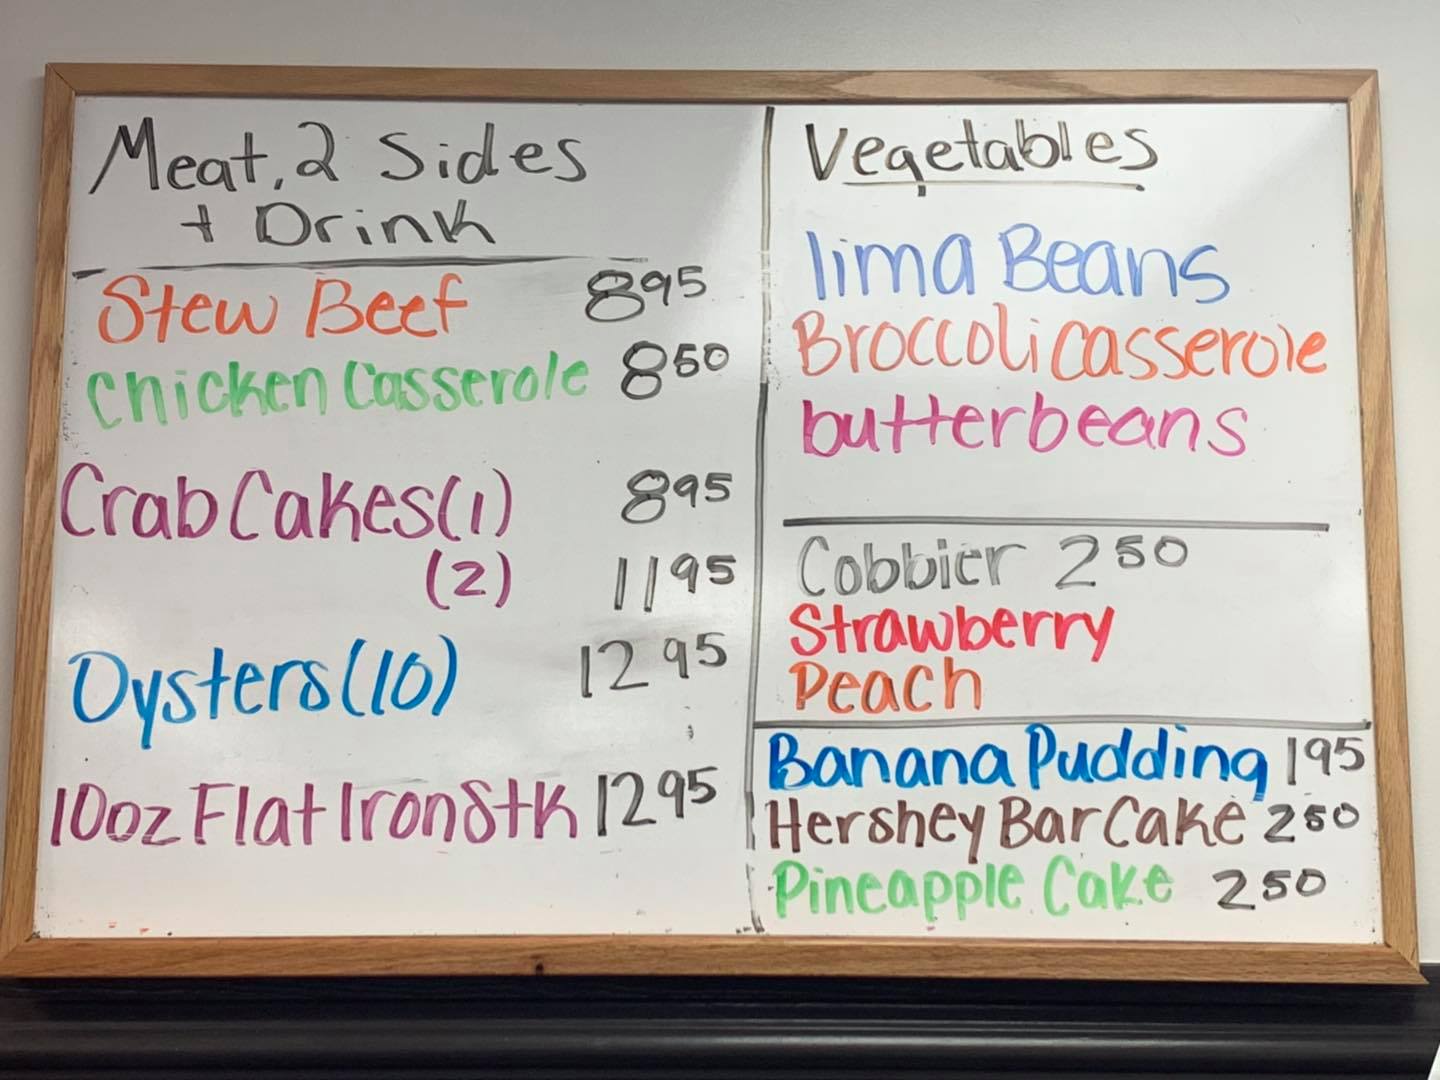 Meat, 2 Sides
+ Drink
Stew Beef 8 95
Chicken Casserole 8 50
Crab Cakes (1) 8 95
(2) 11 95
Oysters (10) 12 95
10oz Flat Iron Stk 12 95
Vegetables
lima Beans
Broccoli casserole
butterbeans
Cobbler 2 50
Strawberry
Peach
Banana Pudding 1 95
Hershey Bar Cake 2 50
Pineapple Cake 2 50